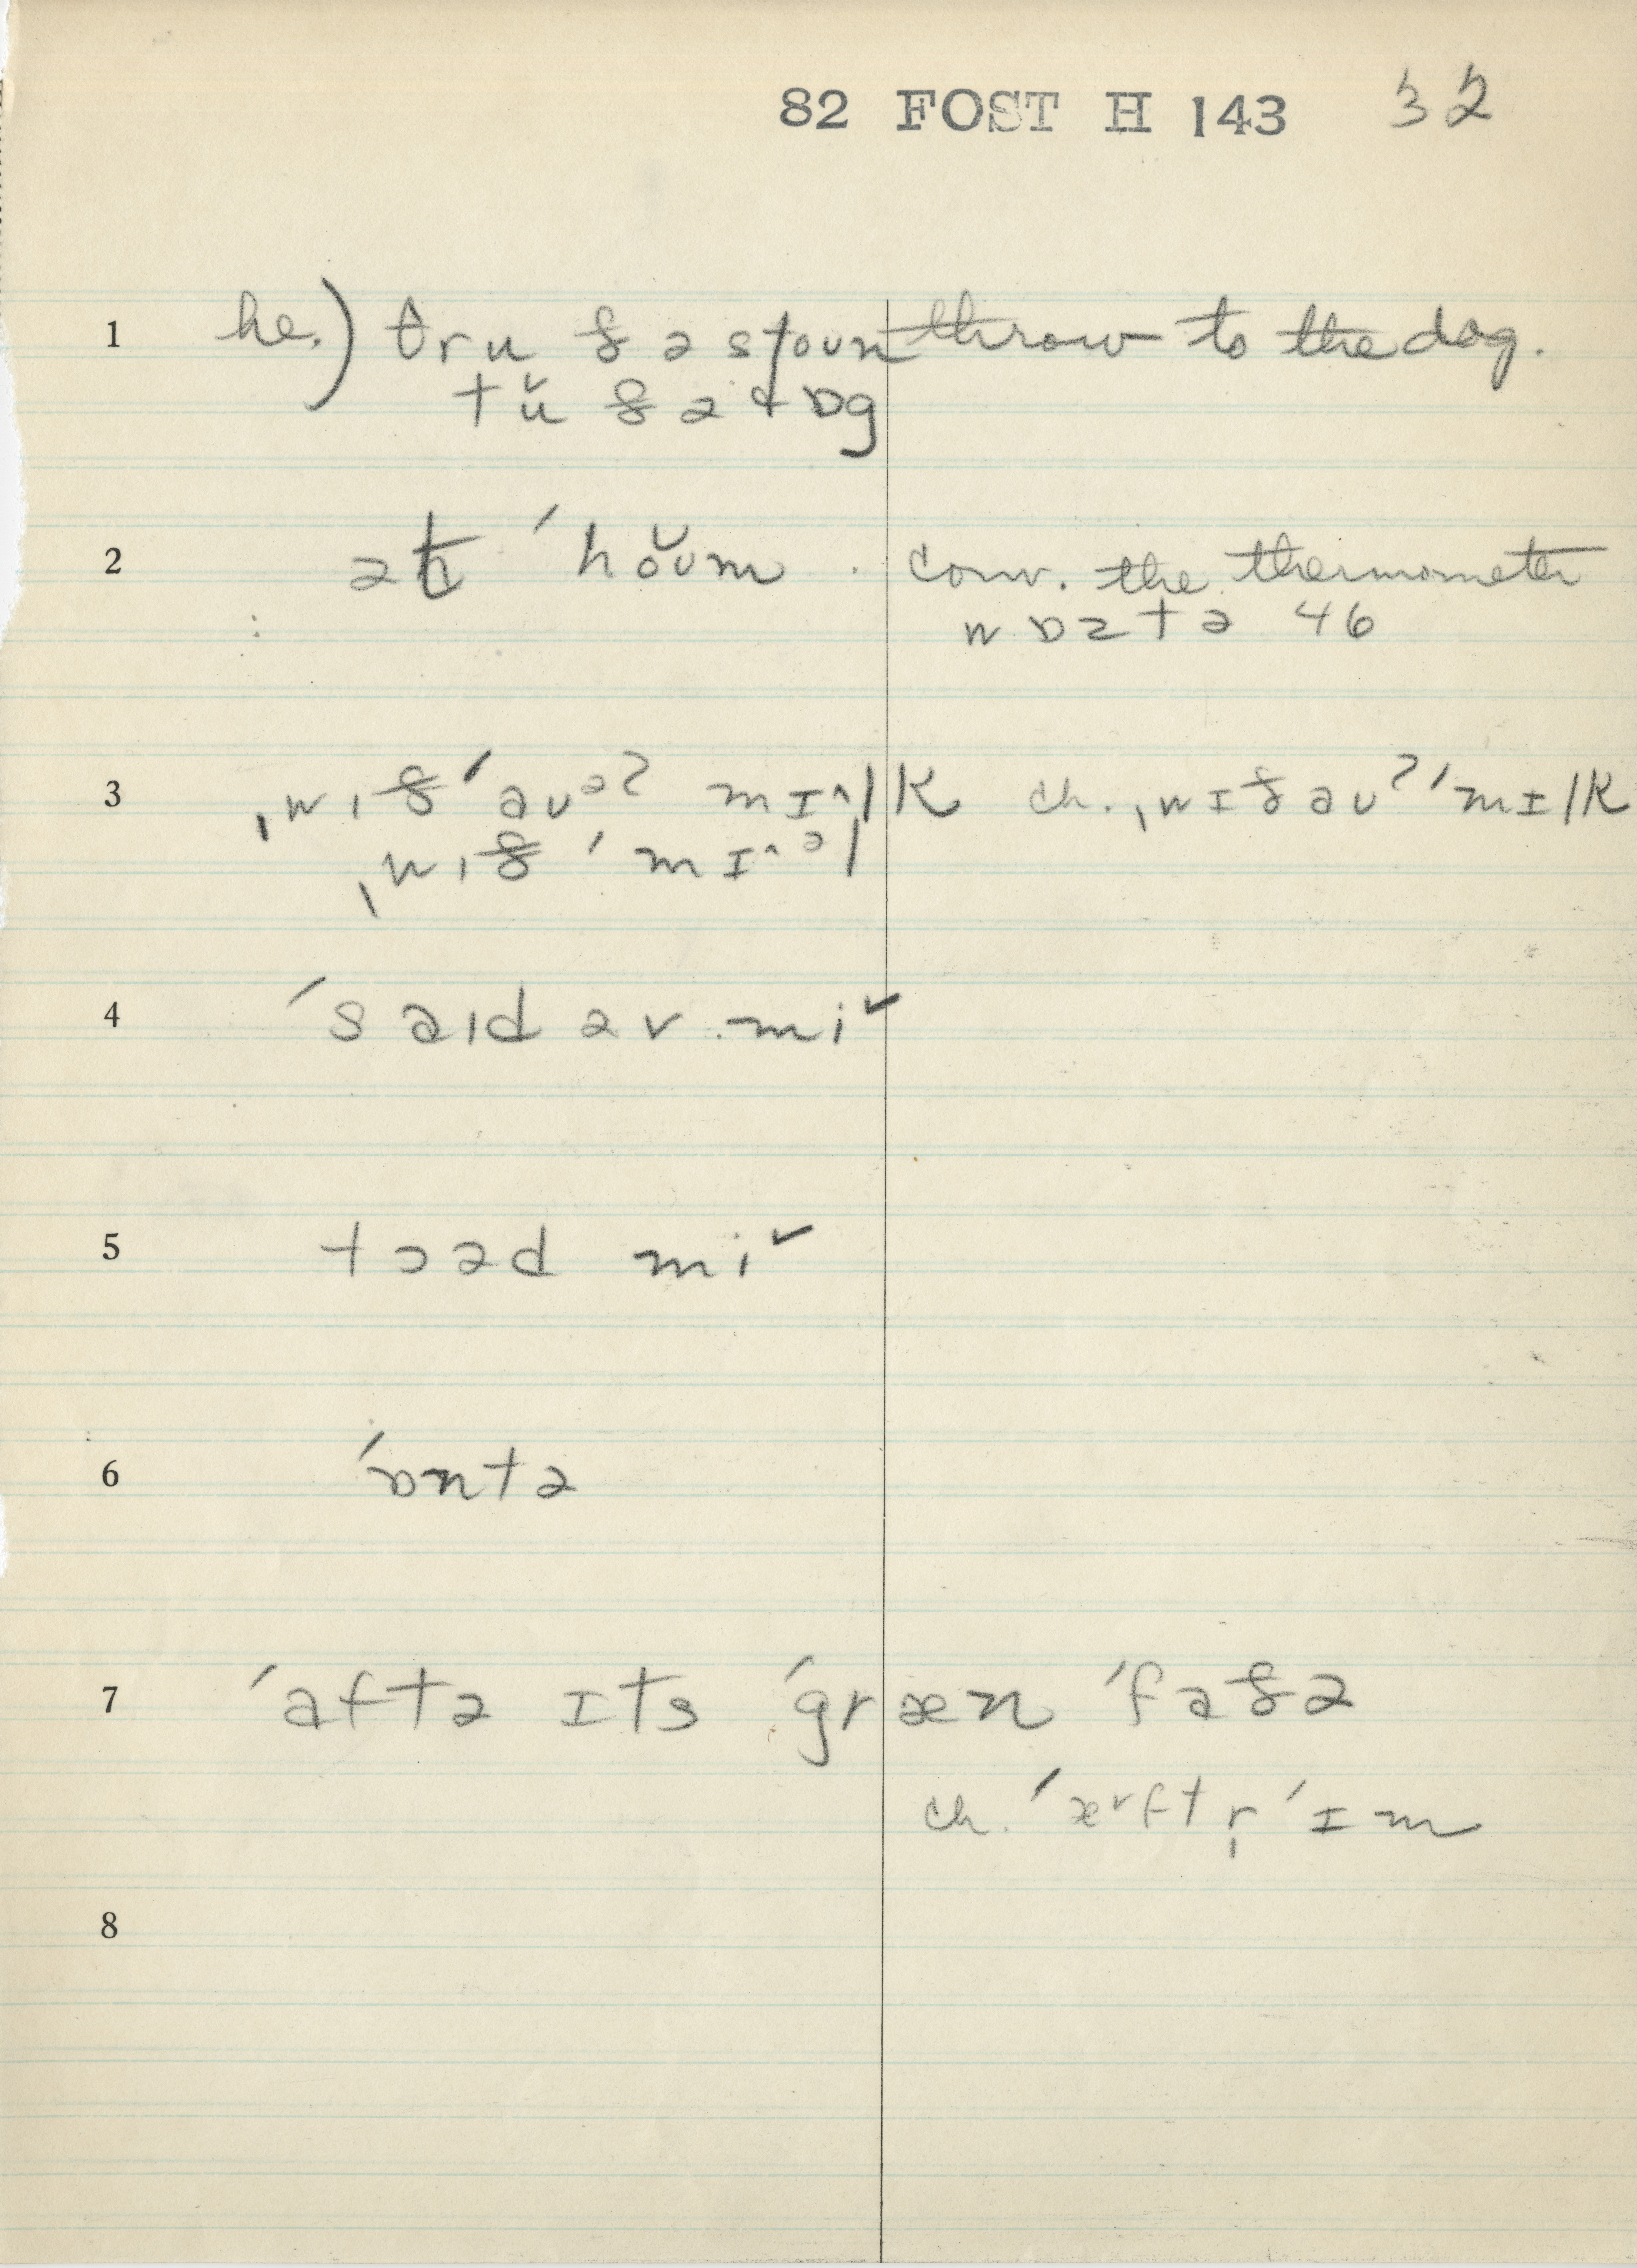 82 FOST H 143 32
1 he.) θru ðə stoun throw to the dog.
tŭ ðə dɒg
2 ət ˈhŏʊm . conv. the thermometer
wɒz tə 46
3 ˌwɪð ˈaʊəʔ mɪ^lk ch. ˌwɪðaʊʔ ˈmɪlk
ˌwɪð ˈmɪ^əl
4 ˈsaɪd əv mi˅
5 tɔəd mi˅
6 ˈɒntə
7 ˈaftə ɪts ˈgræn ˈfaðə
ch. ˈæ˅ftr̩ ˈɪm
8